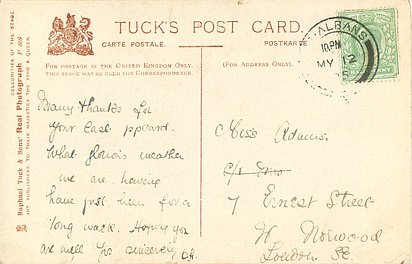 TUCK'S POST CARD
CARTE POSTALE.
POSTKARTE
FOR POSTAGE IN THE UNITED KINGDOM ONLY,
THIS SPACE MAY BE USED FOR CORRESPONDENCE.
(FOR ADDRESS ONLY.)
ST ALBANS
10.PM
MY 12
CELEBRITIES OF THE STAGE
Raphael Tuck & Sons' Real Photograph
ART PUBLISHERS TO THEIR MAJESTIES THE KING & QUEEN.
Many thanks for
your
What glorious weather
we are having
have just been for a
long walk. Hoping you
are well yrs sincerely
Miss Adams.
7 Ernest Street
W. Norwood
London SE.